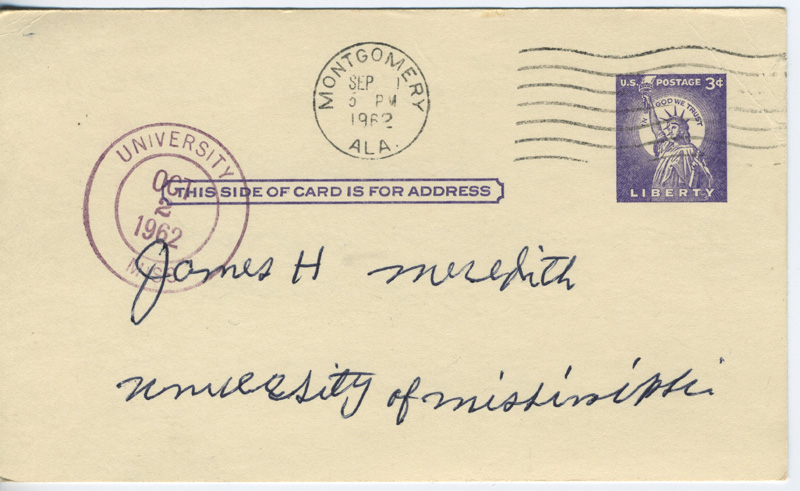 MONTGOMERY
SEP 1
PM
1962
ALA.
U.S. POSTAGE 3¢
IN GOD WE TRUST
LIBERTY
UNIVERSITY
OCT
2
1962
MISS
THIS SIDE OF CARD IS FOR ADDRESS
James H Meredith
University of mississippi